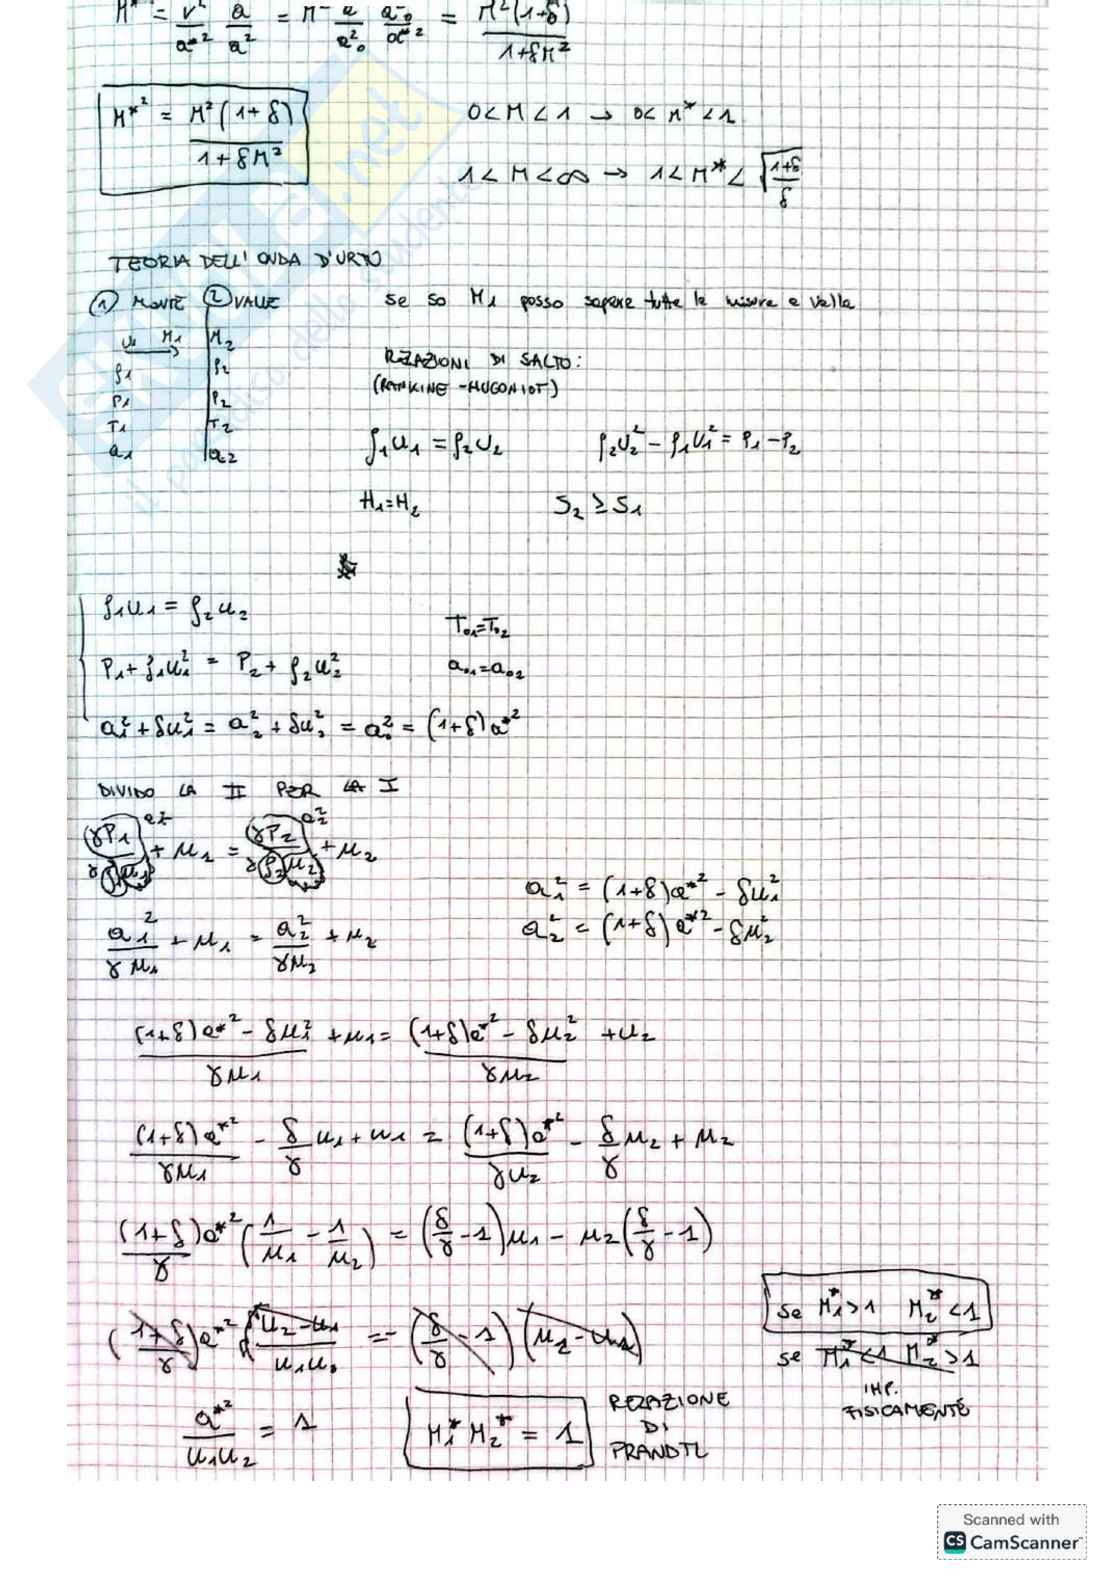 M*² = V²/a*² a²/a² = M² a²/a₀² a₀²/a*² = M²(1+δ)/1+δM²
M*² = M²(1+δ)/1+δM²
0<M<1 → 0<M*<1
1<M<∞ → 1<M*<√(1+δ/δ)
TEORIA DELL'ONDA D'URTO
① MONTE ② VALLE
se so M₁ posso sapere tutte le misure a valle
u₁ M₁ M₂
ρ₁ ρ₂
P₁ P₂
T₁ T₂
a₁ a₂
RELAZIONI DI SALTO:
(RANKINE-HUGONIOT)
ρ₁u₁ = ρ₂u₂
ρ₂U₂² - ρ₁U₁² = P₁-P₂
H₁=H₂
S₂ ≥ S₁
ρ₁u₁ = ρ₂u₂
T₀₁=T₀₂
P₁+ρ₁u₁² = P₂+ρ₂u₂²
a₀₁=a₀₂
a₁²+δu₁² = a₂²+δu₂² = a₀² = (1+δ)a*²
DIVIDO LA II PER LA I
γP₁/γρ₁u₁ a₁² + u₁ = γP₂/γρ₂u₂ a₂² + u₂
a₁² = (1+δ)a*² - δu₁²
a₂² = (1+δ)a*² - δu₂²
a₁²/γu₁ + u₁ = a₂²/γu₂ + u₂
(1+δ)a*² - δu₁²/γu₁ + u₁ = (1+δ)a*² - δu₂²/γu₂ + u₂
(1+δ)a*²/γu₁ - δ/γ u₁ + u₁ = (1+δ)a*²/γu₂ - δ/γ u₂ + u₂
(1+δ)a*²/γ (1/u₁ - 1/u₂) = (δ/γ - 1)u₁ - u₂(δ/γ - 1)
(1+δ/γ)a*² (u₂-u₁/u₁u₂) = -(δ/γ - 1)(u₂-u₁)
se M₁*>1 M₂*<1
se M₁*<1 M₂*>1
IMP.
FISICAMENTE
a*²/u₁u₂ = 1
M₁* M₂* = 1
RELAZIONE
DI
PRANDTL
Scanned with
CS CamScanner